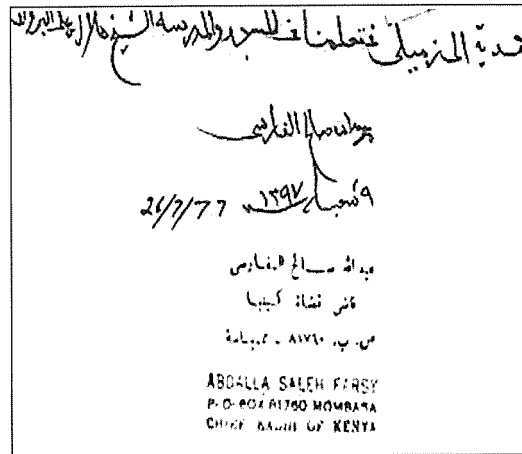 هدية إلى زميلي في المسجد والمدرسة الشيخ هلال علي البرواني
عبدالله صالح الفارسي
٩ شعبان ١٣٩٧ 26/7/77
عبدالله صالح الفارسي
قاضي قضاة كينيا
ص. ب. ٨١٧٦٠ ، ممباسة
ABDALLA SALEH FARSY
P. O. BOX 81760 MOMBASA
CHIEF KADHI OF KENYA